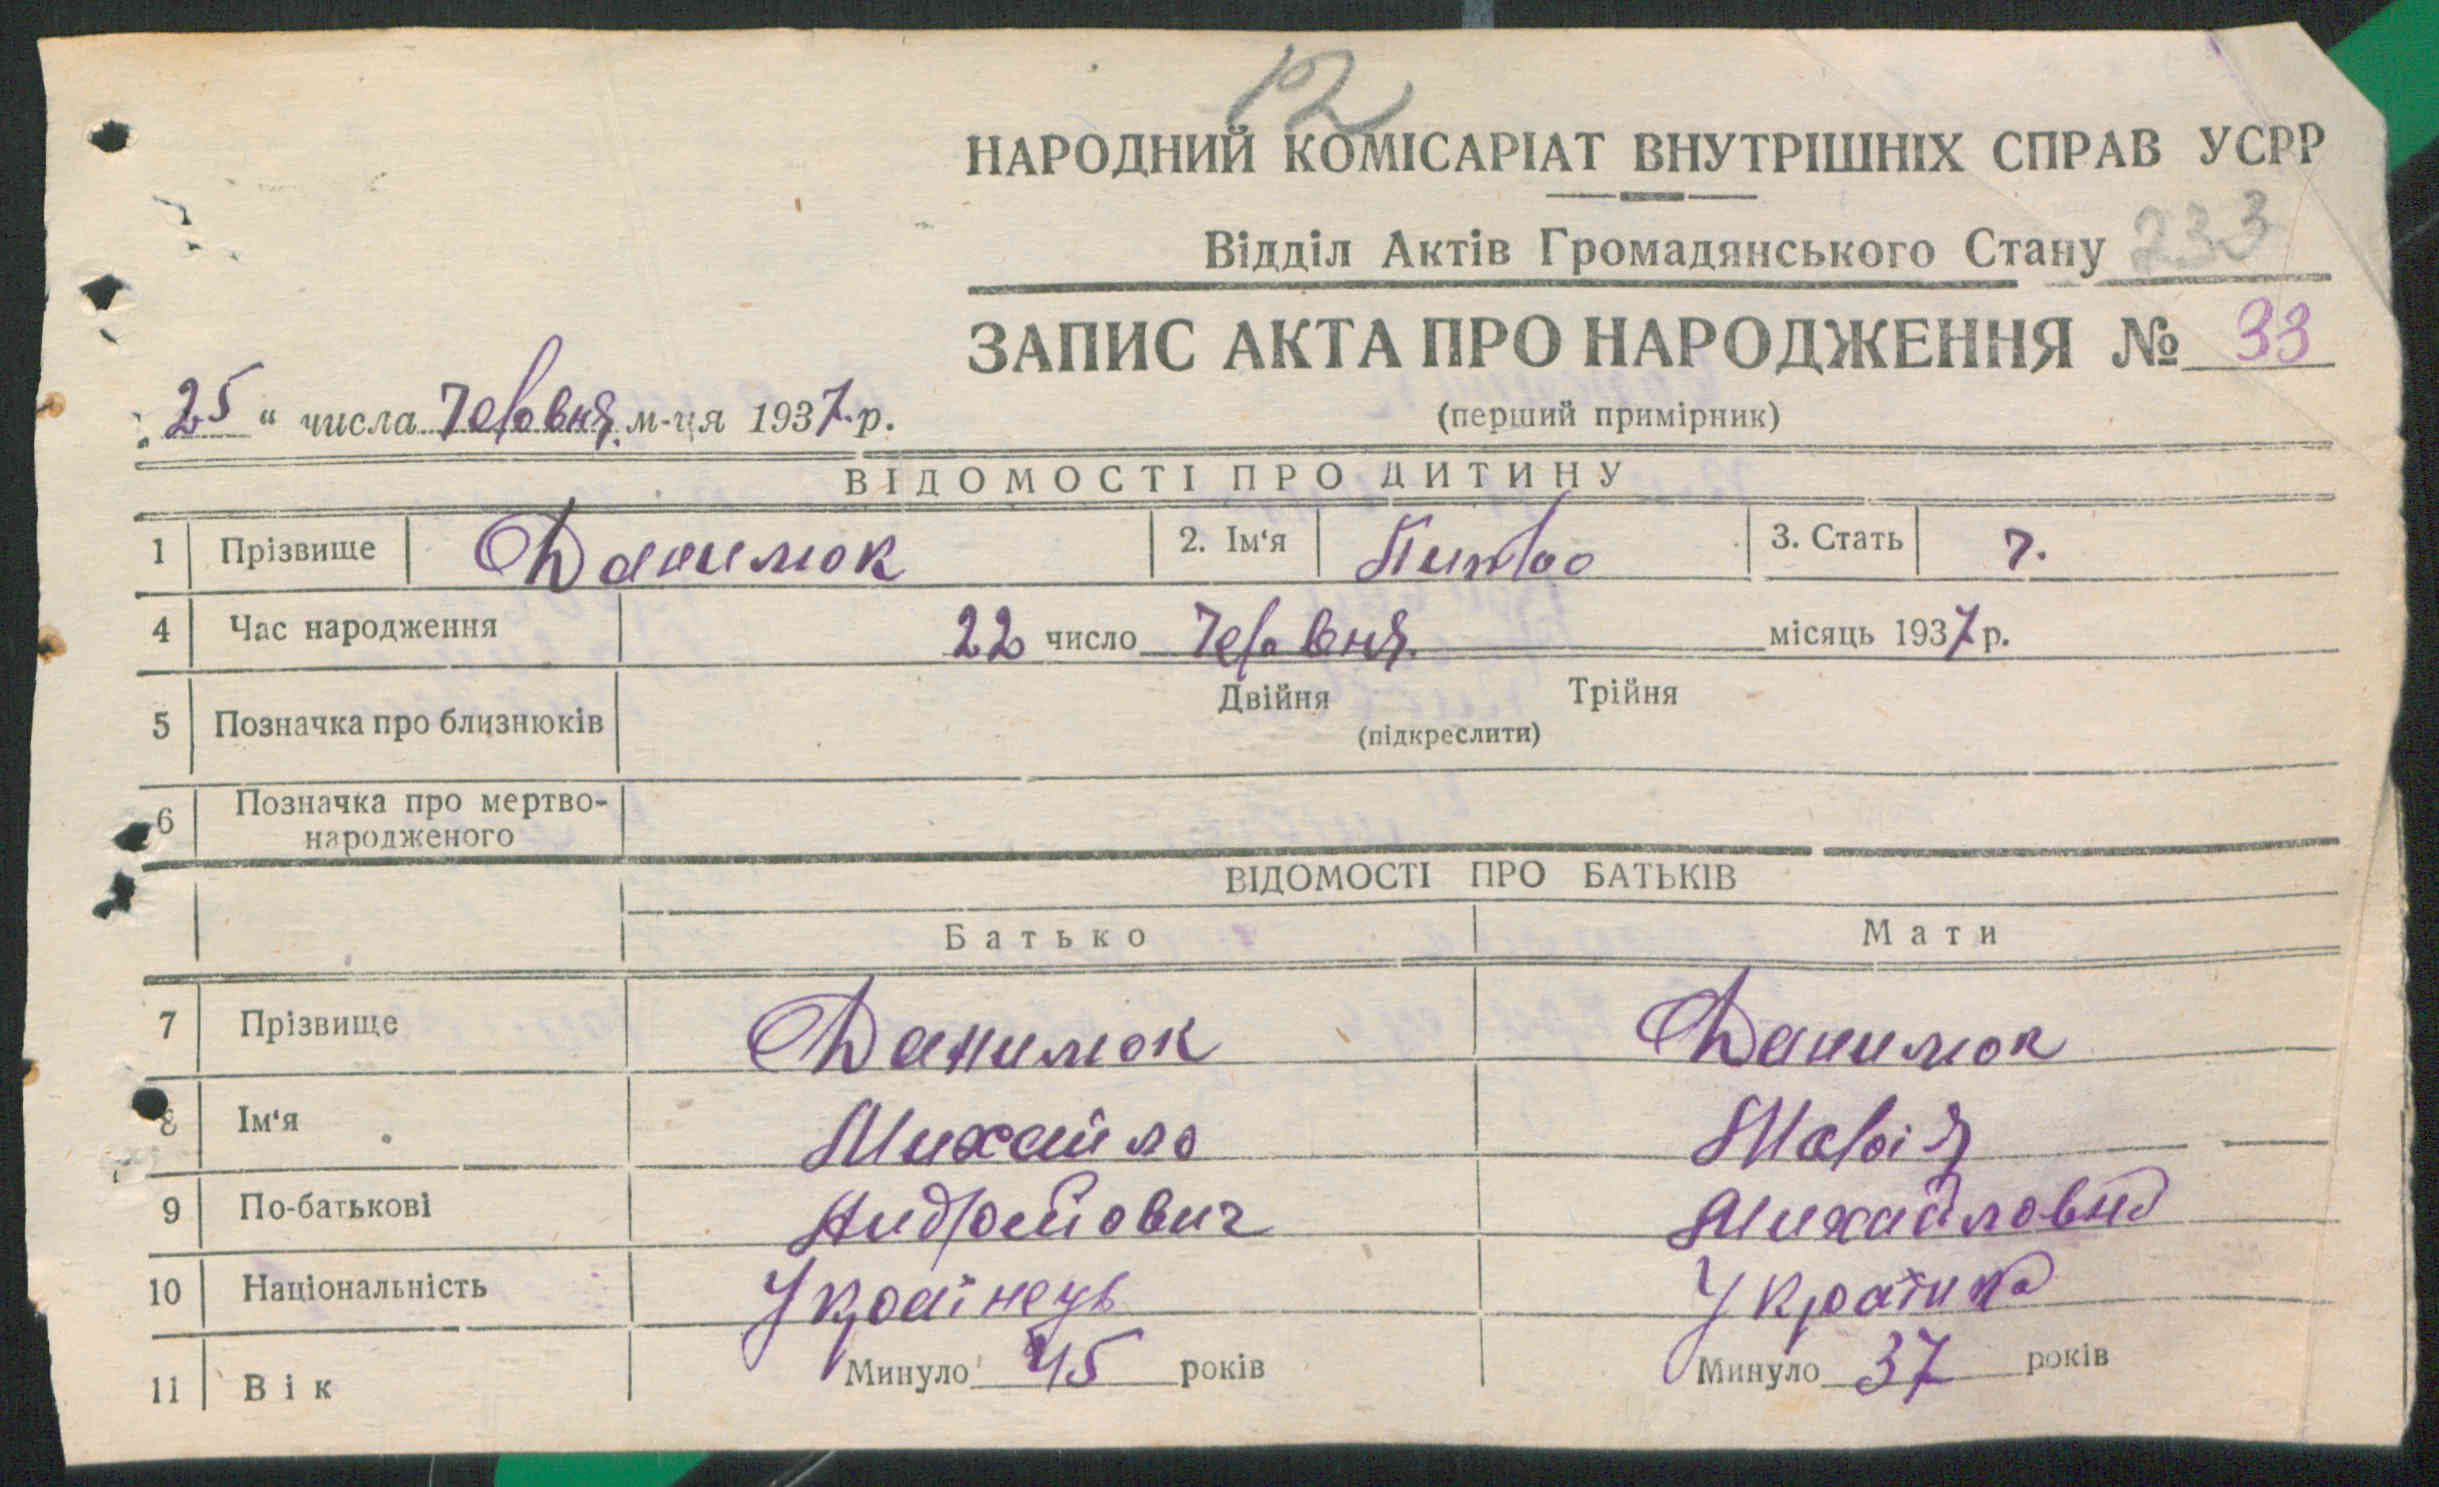 12
НАРОДНИЙ КОМІСАРІАТ ВНУТРІШНІХ СПРАВ УСРР
Відділ Актів Громадянського Стану 233
ЗАПИС АКТА ПРО НАРОДЖЕННЯ № 33
(перший примірник)
„25“ числа Червня м-ця 1937 р.
ВІДОМОСТІ ПРО ДИТИНУ
1 Прізвище Данилюк 2. Ім‘я 3. Стать ч.
4 Час народження 22 число Червня місяць 1937 р.
5 Позначка про близнюків Двійня Трійня
(підкреслити)
6 Позначка про мертво-
народженого
ВІДОМОСТІ ПРО БАТЬКІВ
Батько Мати
7 Прізвище Данилюк Данилюк
8 Ім‘я Михайло Марія
9 По-батькові Михайловна
10 Національність Українець Українка
11 Вік Минуло 45 років Минуло 37 років